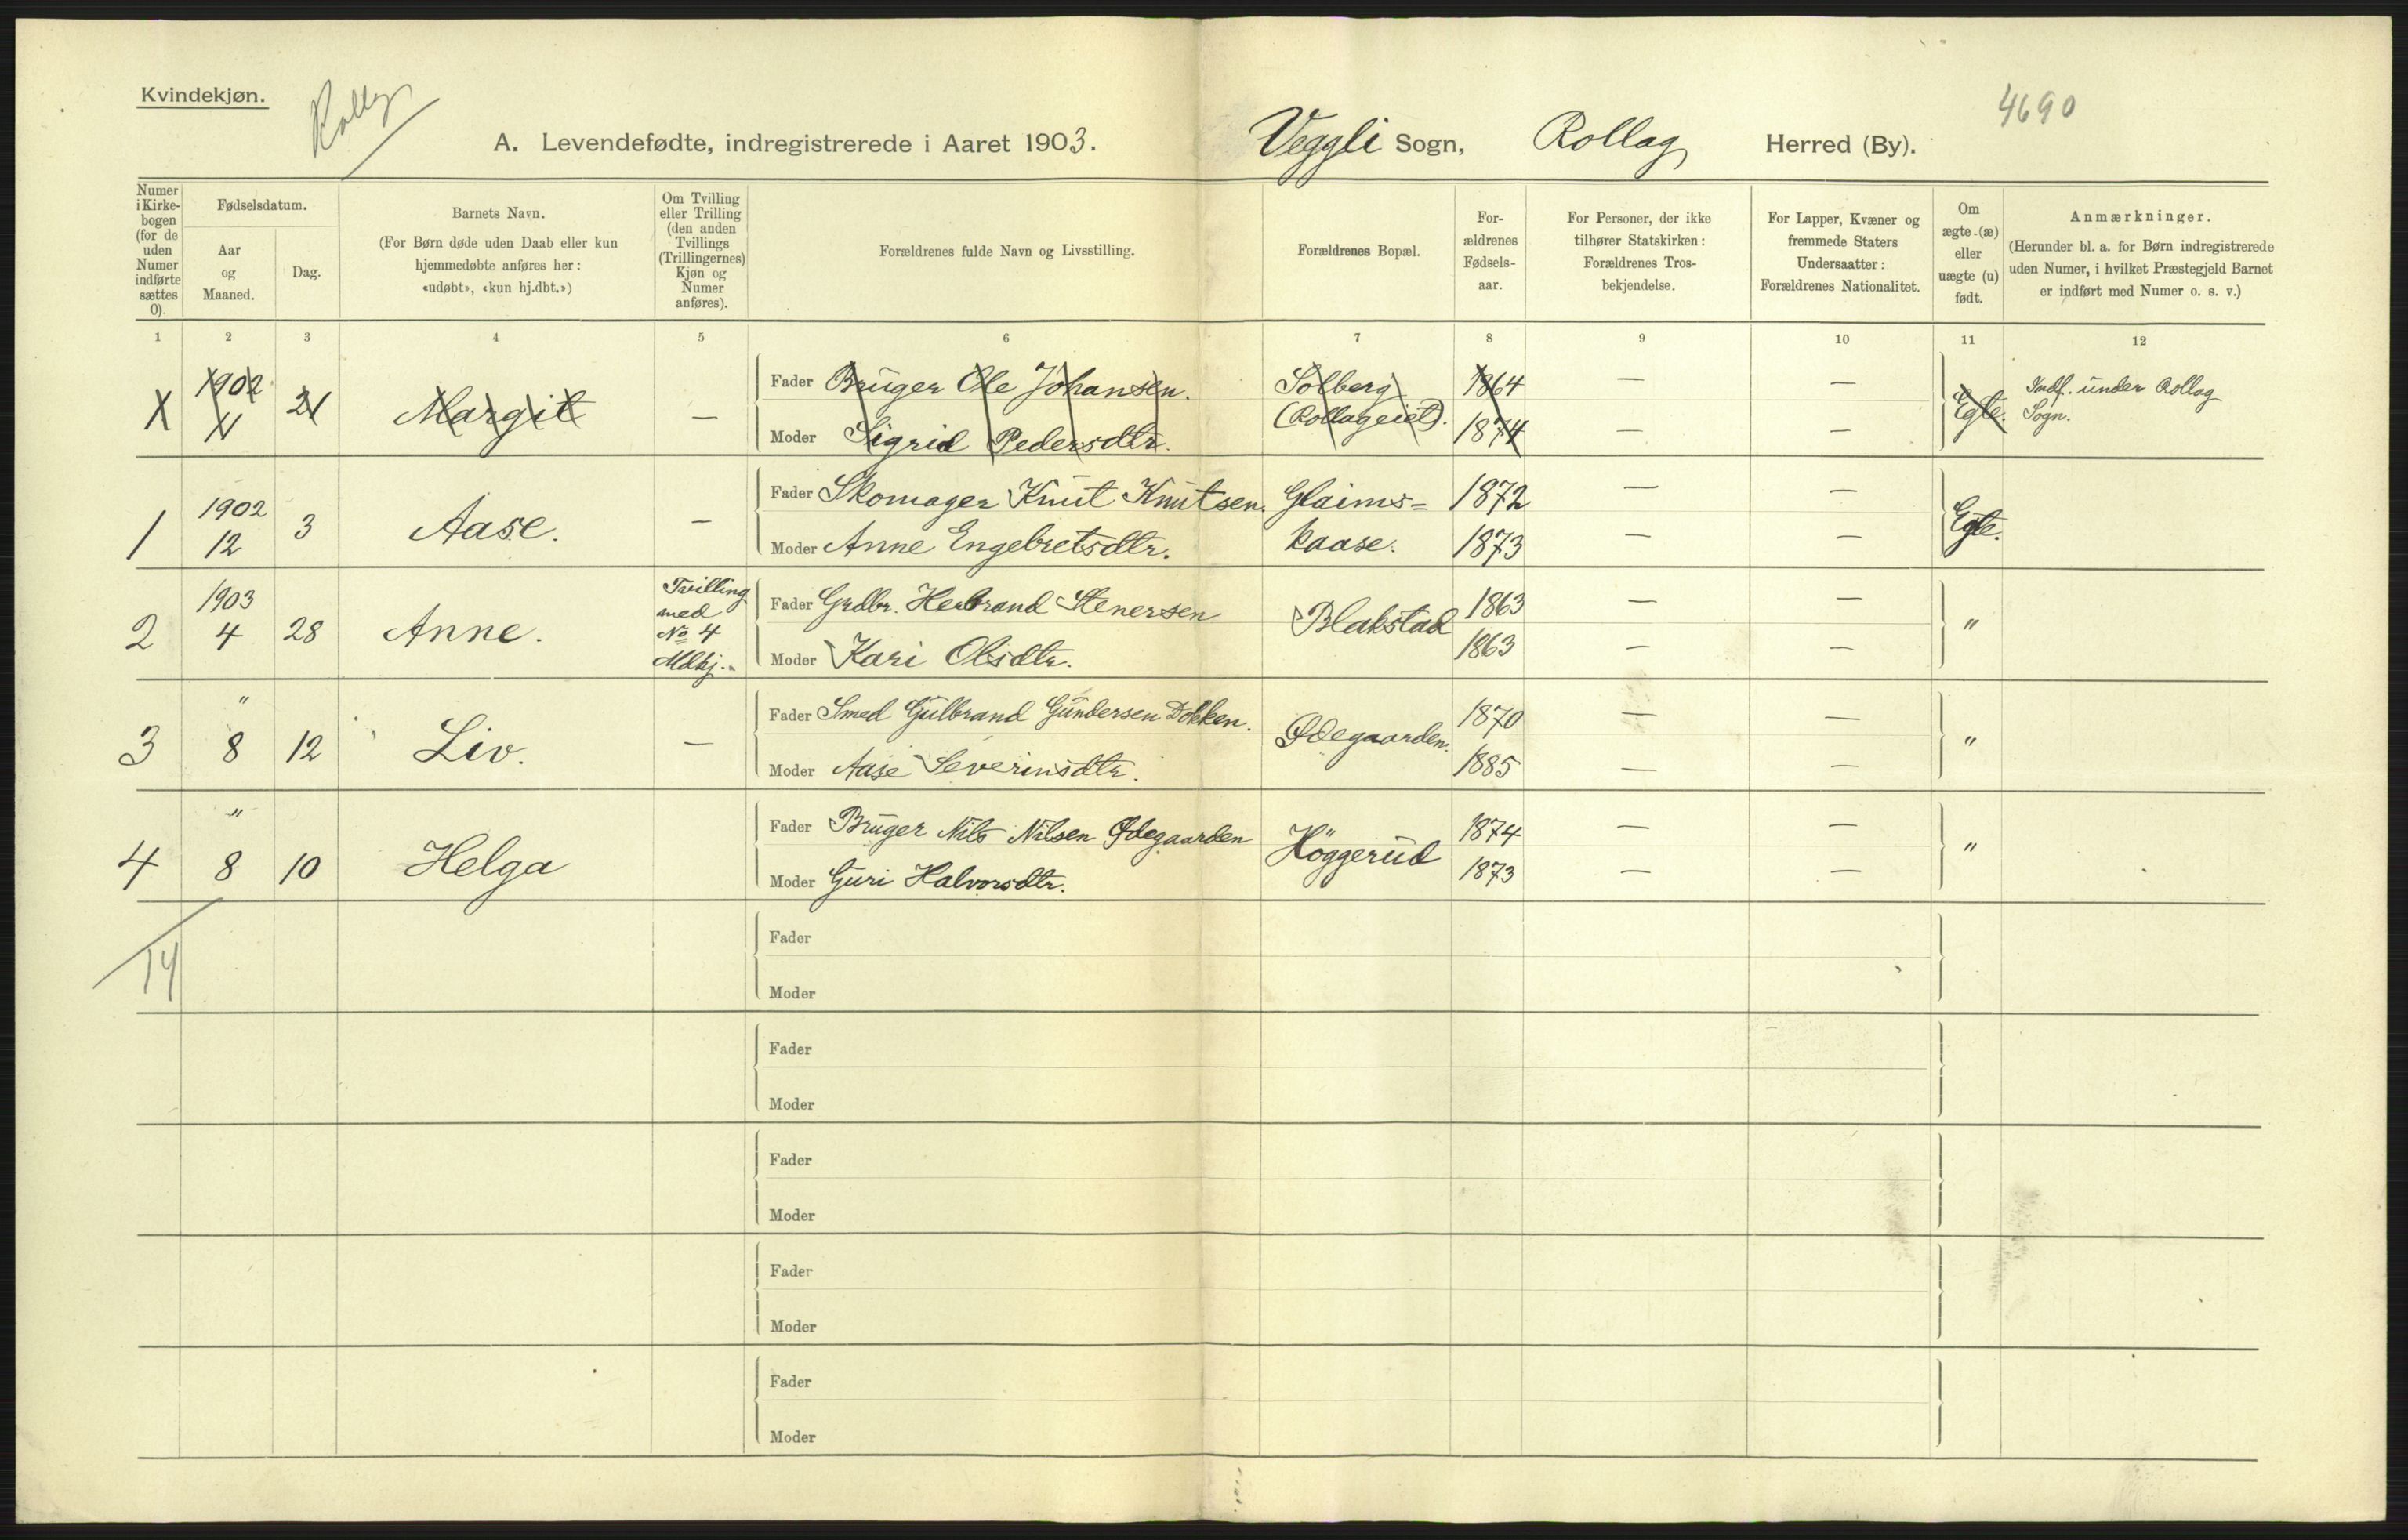 Kvindekjøn.
Rollag
4690
A. Levendefødte, indregistrerede i Aaret 1903. Veggli Sogn, Rollag Herred (By).
Numer i Kirke-bogen (for de uden Numer indførte sættes 0).
Fødselsdatum.
Aar og Maaned.
Dag.
Barnets Navn.
(For Børn døde uden Daab eller kun
hjemmedøbte anføres her:
«udøbt», «kun hj.dbt.»)
Om Tvilling
eller Trilling
(den anden
Tvillings
(Trillingernes)
Kjøn og
Numer
anføres).
Forældrenes fulde Navn og Livsstilling.
Forældrenes Bopæl.
For-
ældrenes
Fødsels-
aar.
For Personer, der ikke
tilhører Statskirken:
Forældrenes Tros-
bekjendelse.
For Lapper, Kvæner og
fremmede Staters
Undersaatter:
Forældrenes Nationalitet.
Om
ægte (æ)
eller
uægte (u)
født.
Anmærkninger.
(Herunder bl. a. for Børn indregistrerede
uden Numer, i hvilket Præstegjeld Barnet
er indført med Numer o. s. v.)
1 2 3 4 5 6 7 8 9 10 11 12
1902 11 21 Margit — Fader Bruger Ole Johansen. Solberg 1864 — —
Moder Sigrid Pedersdtr. (Rollageiet). 1874 — — Egte. Indf. under Rollag
Sogn.
1 1902 12 3 Aase. — Fader Skomager Knut Knutsen. Glaims= 1872 — —
Moder Anne Engebretsdtr. kaase. 1873 — — Egte.
2 1903 4 28 Anne. Tvilling
med
No 4
Mdkj. Fader Grdbr. Herbrand Stenersen Blakstad 1863 — —
Moder Kari Olsdtr. 1863 — — "
3 " 8 12 Liv. — Fader Smed Gulbrand Gundersen Dokken. Ødegaarden. 1870 — —
Moder Aase Severinsdtr. 1885 — — "
4 " 8 10 Helga Fader Bruger Nils Nilsen Ødegaarden Höggerud 1874 — —
Moder Guri Halvorsdtr. 1873 — — "
14
Fader
Moder
Fader
Moder
Fader
Moder
Fader
Moder
Fader
Moder